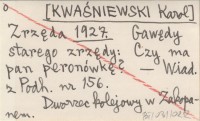 [KWAŚNIEWSKI Karol]
Zrzęda 1927. Gawędy
starego zrzędy: Czy ma
pan peronówkę? — Wiad.
z Podh. nr 156.
Dworzec kolejowy w Zakopa-
nem.